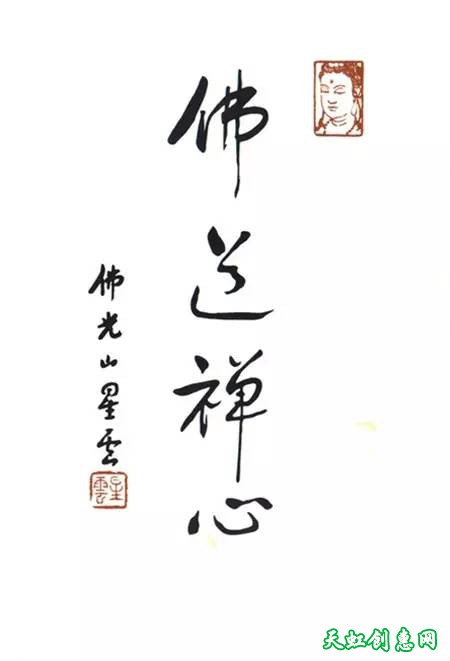 佛道禅心
佛光山星雲
星雲
天虹创惠网